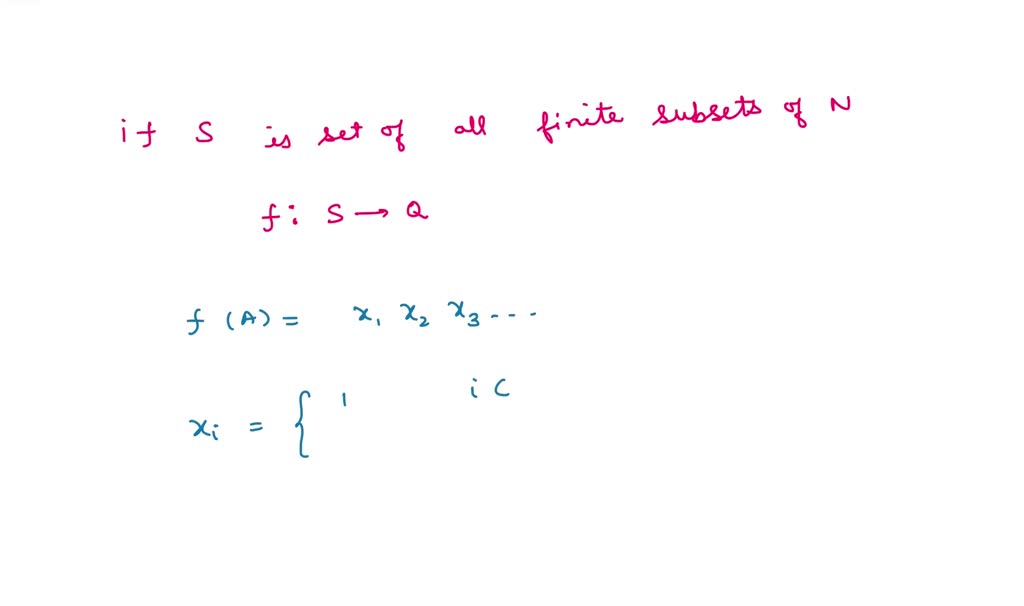 if S is set of all finite subsets of N
f: S → Q
f (A) = x₁ x₂ x₃ ...
xᵢ = { 1 i C